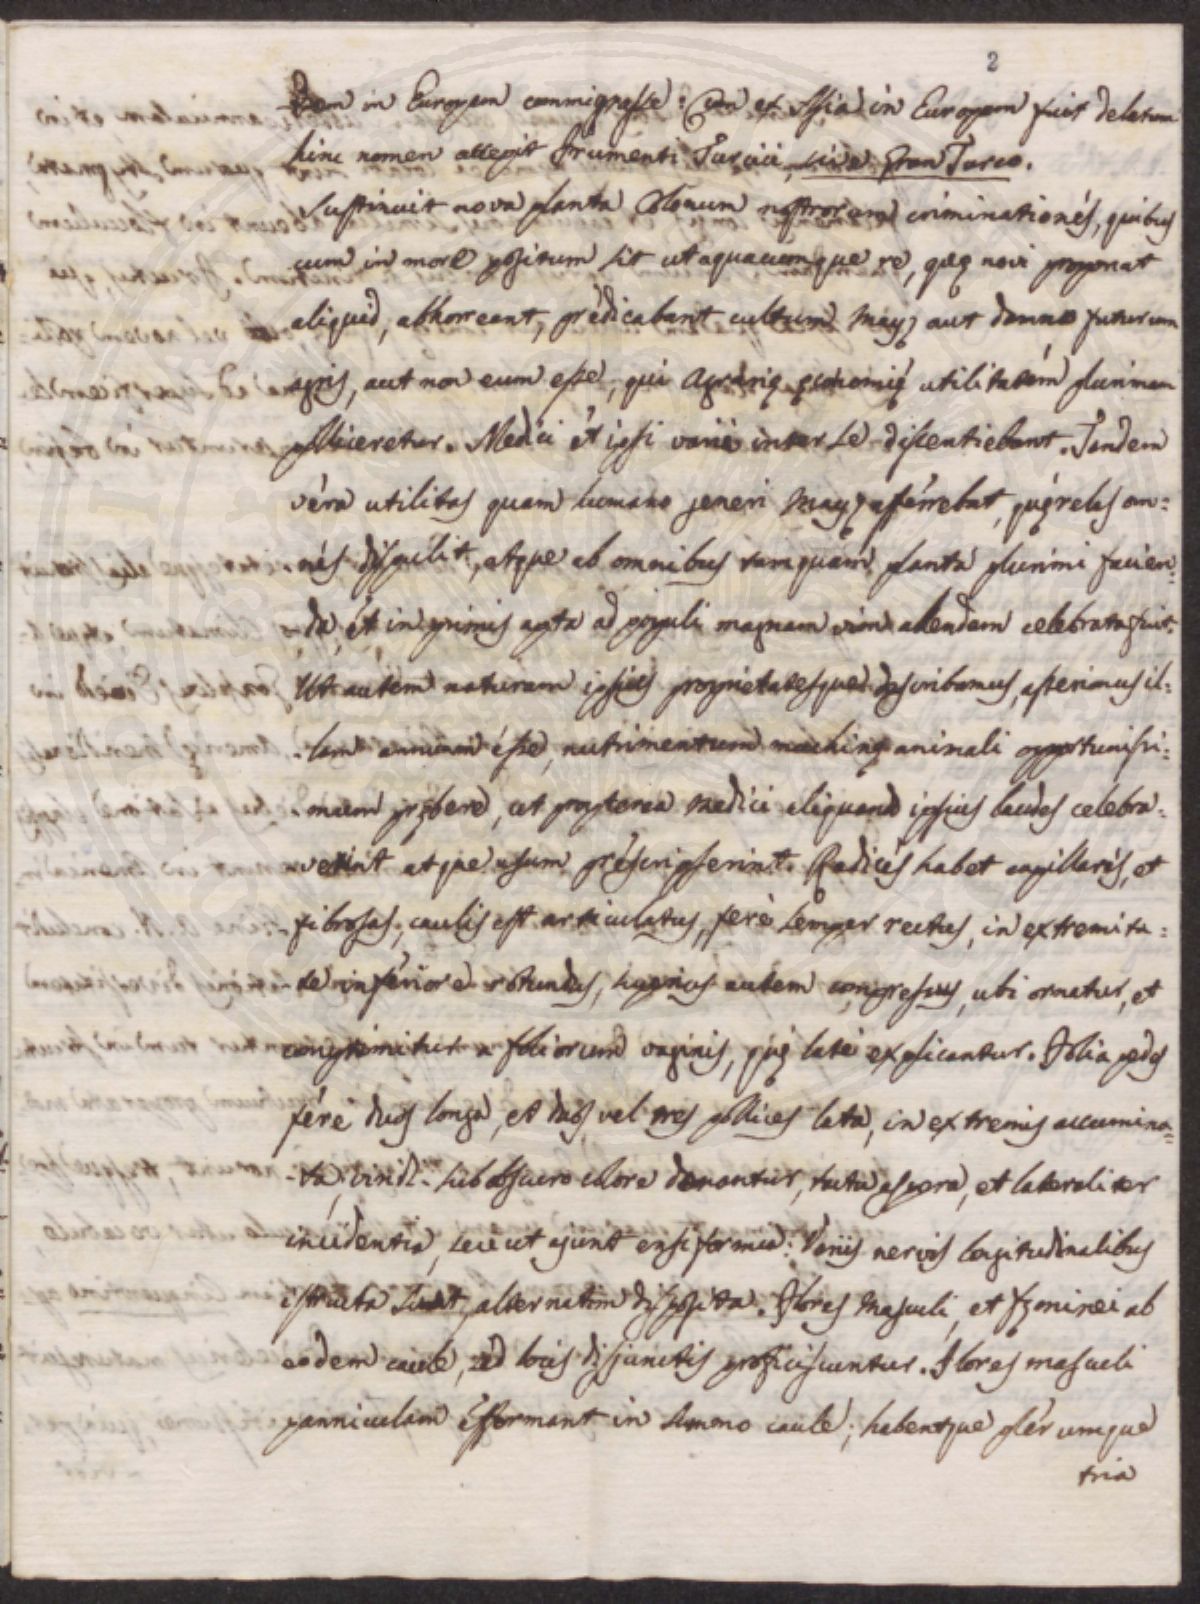 2
dem in Europam commigrasse: Cum ex Asia in Europam fuit delatum
hinc nomen accepit frumenti Turcici, sive Gran Turco.
Sustinuit nova planta Colonum nostrorum criminationes, quibus
cum in more positum sit ut a quacumque re, quę novi proponat
aliquid, abhorreant, prędicabant cultum Mayz aut damno futurum
agris, aut non eum esse, qui Agrarię ęconomię utilitatem plurimam
polliceretur. Medici et ipsi varii inter se dissentiebant. Tandem
vera utilitas quam humano generi Mayz afferrebat, quęrelas om:
nes dispulit, atque ab omnibus tamquam planta plurimi facien:
da, et in primis apta ad populi magnam vim alendam celebrata fuit.
Ut autem naturam ipsius proprietatesque describamus, asserimus il:
lam annuam esse, nutrimentum machinę animali opportunissi:
mum pręberę, ut propterea Medici aliquando ipsius laudes celebra:
verint atque usum pręscripserint. Radices habet capillares, et
fibrosas; caulis est articulatus, fere semper rectus, in extremita:
te inferiore rotundus, superius autem compressus, ubi ornatur, et
comprimitur a foliorum vaginis, quę late explicantur. Folia pedes
fere duos longa, et duos vel tres pollices lata, in extremis accumina:
ta, viridi subobscuro colore donantur, tactu aspera, et lateraliter
incidentia, seu ut ajunt ensiformia: Variis nervis longitudinalibus
istructa sunt, alternatim disposita. Flores Masculi, et fęminei ab
eodem caule, sed locis disjunctis proficiscuntur. Flores masculi
panniculam efformant in summo caule; habentque plerumque
tria